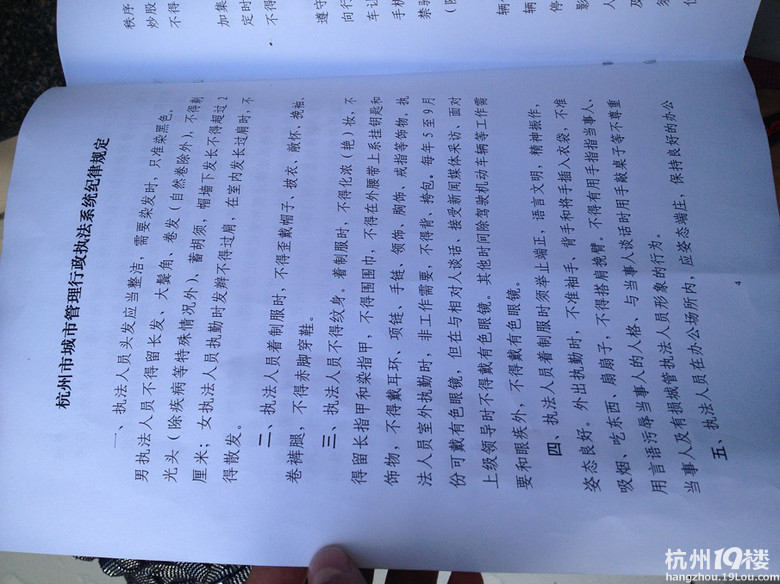 杭州市城市管理行政执法系统纪律规定
一、执法人员头发应当整洁，需要染发时，只准染黑色。
男执法人员不得留长发、大鬓角、卷发（自然卷除外），不得剃
光头（除疾病等特殊情况外）、蓄胡须，帽墙下发长不得超过2
厘米；女执法人员执勤时发辫不得过肩，在室内发长过肩时，不
得散发。
二、执法人员着制服时，不得歪戴帽子、披衣、敞怀、挽袖、
卷裤腿，不得赤脚穿鞋。
三、执法人员不得纹身。着制服时，不得化浓（艳）妆，不
得留长指甲和染指甲，不得围围巾，不得在外腰带上系挂钥匙和
饰物，不得戴耳环、项链、手链、领饰、胸饰、戒指等饰物。执
法人员室外执勤时，非工作需要，不得背、挎包。每年5至9月
份可戴有色眼镜，但在与相对人谈话、接受新闻媒体采访、面对
上级领导时不得戴有色眼镜。其他时间除驾驶机动车辆等工作需
要和眼疾外，不得戴有色眼镜。
四、执法人员着制服时须举止端正，语言文明，精神振作，
姿态良好。外出执勤时，不准袖手、背手和将手插入衣袋，不准
吸烟、吃东西、扇扇子，不得搭肩挽臂，不得有用手指指当事人、
用言语污辱当事人的人格、与当事人谈话时用手敲桌子等不尊重
当事人及有损城管执法人员形象的行为。
五、执法人员在办公场所内，应姿态端庄，保持良好的办公
4
秩序
炒股
不得
加集
定时
不得
遵守
向行
车让
手机
禁驾
辆
辆
停
影
人
及
仕
杭州19楼
hangzhou.19lou.com